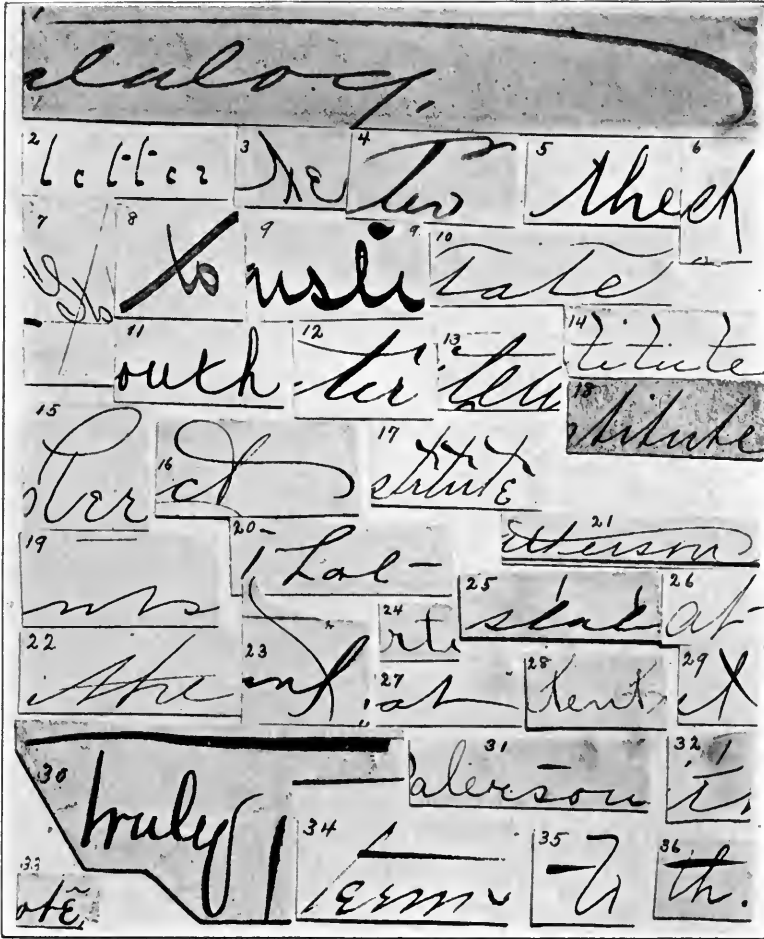 1 alalog,
2 letter 3 the 4 Two 5 the 6 ch
7 8 to 9 usti 9 10 Tate
11 outh 12 ter 13 tell 14 titute
15 ter 16 ct 17 stitute 18 stitute
19 nts 20 That 21 etterson
22 the 23 nt 24 rte 25 state 26 at
27 at 28 tent 29 ct
30 truly 31 Paterson 32 th
33 ote 34 Term 35 ti 36 th.